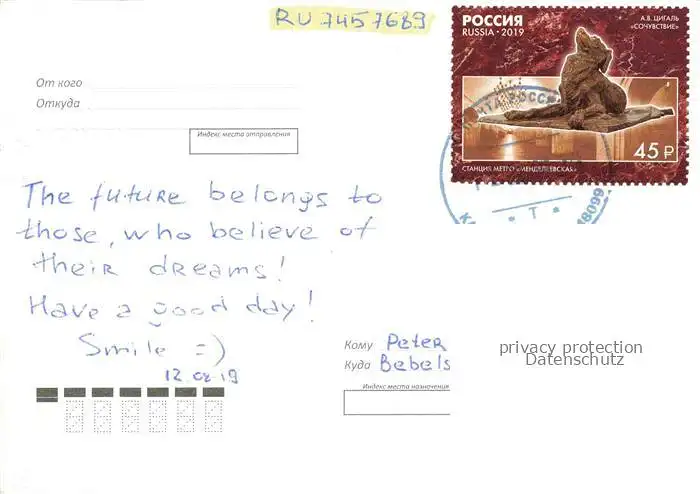 RU 7457689
РОССИЯ
RUSSIA • 2019
А.В. ЦИГАЛЬ
«СОЧУВСТВИЕ»
От кого
Откуда
Индекс места отправления
45 ₽
СТАНЦИЯ МЕТРО «МЕНДЕЛЕЕВСКАЯ»
* Т *
18099
The future belongs to
those, who believe of
their dreams!
Have a good day!
Smile =)
12.08.19
Кому Peter
Куда Bebels
privacy protection
Datenschutz
Индекс места назначения